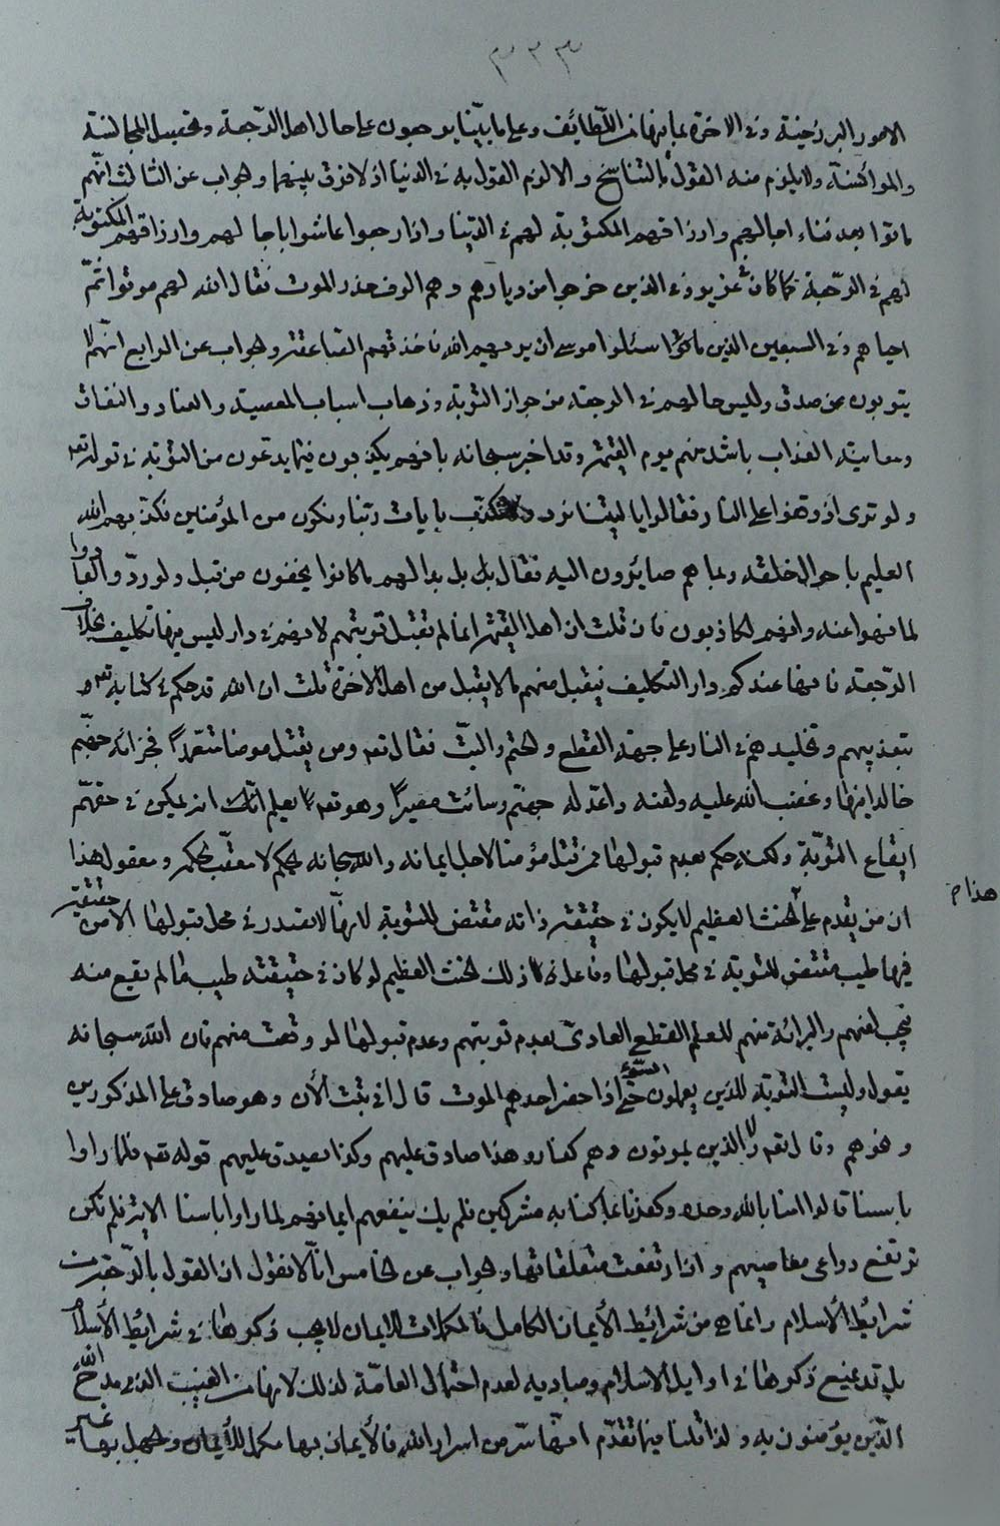 ٣٢٣
الامور البرزخية وفي الاخرة بما فيها من اللطائف وعلى ما بيّنا يرجعون على حال اهل الرّجعة وتحصيل المجالسة
والموانسة ولا يلزم منه القول بالتناسخ والا لزم القول به في الدنيا اذ لا فرق بينهما والجواب عن الثالث انهم
ماتوا بعد فناء اجالهم وارزاقهم المكتوبة لهم في الدّنيا واذا رجعوا عاشوا باجال لهم وارزاقهم المكتوبة
لهم في الرّجعة كما كان في عزير وفي الذين خرجوا من ديارهم وهم الوف حذر الموت فقال الله لهم موتوا ثمّ
احياهم وفي السبعين الذين ماتوا سئلوا موسى ان يريهم الله فاخذتهم الصاعقة والجواب عن الرابع انهم لا
يتوبون عن صدق وليس حالهم في الرجعة من جواز التوبة وذهاب اسباب المعصية والعناد والنفاق
ومعاينة العذاب باشد منهم يوم القيمة وقد اخبر سبحانه بانهم يكذبون فيما يدعون من التوبة في قوله تعم
ولو ترى اذ وقفوا على النار فقالوا يا ليتنا نرد ولا نكذّب بايات ربّنا ونكون من المؤمنين فكذبهم الله
العليم باحوال خلقه وبما هم صائرون اليه فقال بل بل بدا لهم ما كانوا يخفون من قبل ولو ردّوا لعادوا
لما نهوا عنه وانهم لكاذبون فان قلت ان اهل القيمة انما لم تقبل توبتهم لانهم في دار ليس فيها تكليف بخلاف
الرّجعة فانها عندكم دار التكليف فيقبل منهم ما لا يقبل من اهل الاخرة قلت ان الله قد حكم في كتابه
بتعذيبهم وتخليدهم في النار على جهة القطع والحتم والبتّ فقال تعم ومن يقتل مؤمنا متعمّدًا فجزائه جهنّم
خالدا فيها وغضب الله عليه ولعنه واعدّ له جهنّم وسائت مصيرًا وهو تعم يعلم انّه يمكن في حقهم
ايقاع التوبة ولكنه حكم بعدم قبولها ممن قتل مؤمنا لاجل ايمانه والله سبحانه يحكم لا معقّب لحكمه ومعقول هذا
هذا م
ان من يقدم على الحنث العظيم لا يكون في حقيقة ذاته مقتض للتوبة لانّها لا تصدر في محل قبولها الا من حقيقة
فيها طيب مقتض للتوبة في محل قبولها وفاعل ذلك الحنث العظيم لو كان في حقيقته طيب ما لم يقع منه
فيجب لعنهم والبرائة منهم للعلم القطع العاديّ بعدم توبتهم وعدم قبولها لو وقعت منهم فان الله سبحانه
يقول وليست التوبة للذين يعملون السّيئات حتى اذا حضر احدهم الموت قال اني تبت الأن وهو صادق على المذكورين
ونحوهم وقال تعم ولا الذين يموتون وهم كفار وهذا صادق عليهم وكذا يصدق عليهم قوله تعم فلما راوا
باسنا قالوا امنا بالله وحده وكفرنا بما كنا به مشركين فلم يك ينفعهم ايمانهم لما راوا باسنا الاية فلم تكن
ترتفع دواعي معاصيهم واذا ارتفعت متعلقاتها والجواب عن الخامس انّا لا نقول ان القول بالرّجعة من
شرائط الأسلام وانما هي من شرائط الأيمان الكامل فالمكملات للايمان لا يجب ذكرها في شرائط الأسلام
بل قد يمنع ذكرها في اوايل الاسلام ومباديه لعدم احتمال العامّة لذلك لانها من الغيب الذي مدح الله
الذين يؤمنون به ولذا قلنا فيما تقدّم انها سرّ من اسرار الله فالأيمان بها مكمل للأيمان والجهل بها غير